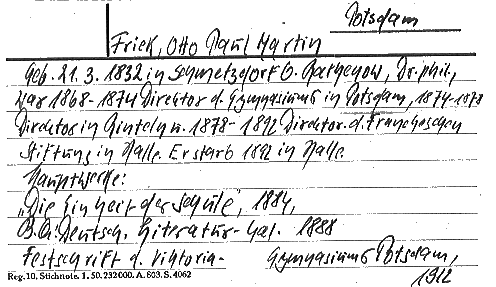 Potsdam
Frick, Otto Paul Martin
Geb. 21. 3. 1832 in Schmetzdorf b. Rathenow, Dr. phil.,
war 1868-1874 Direktor d. Gymnasiums in Potsdam, 1874-1878
Direktor in Rinteln u. 1878-1892 Direktor d. Franckeschen
Stiftung in Halle. Er starb 1892 in Halle.
Hauptwerke:
„Die Einheit der Schule", 1884,
Deutsch. Literatur-Kal. 1888
Festschrift d. Viktoria- Gymnasiums Potsdam,
1912
Reg. 10. Stichnote. 1. 50. 232000. A. 803. S. 4062